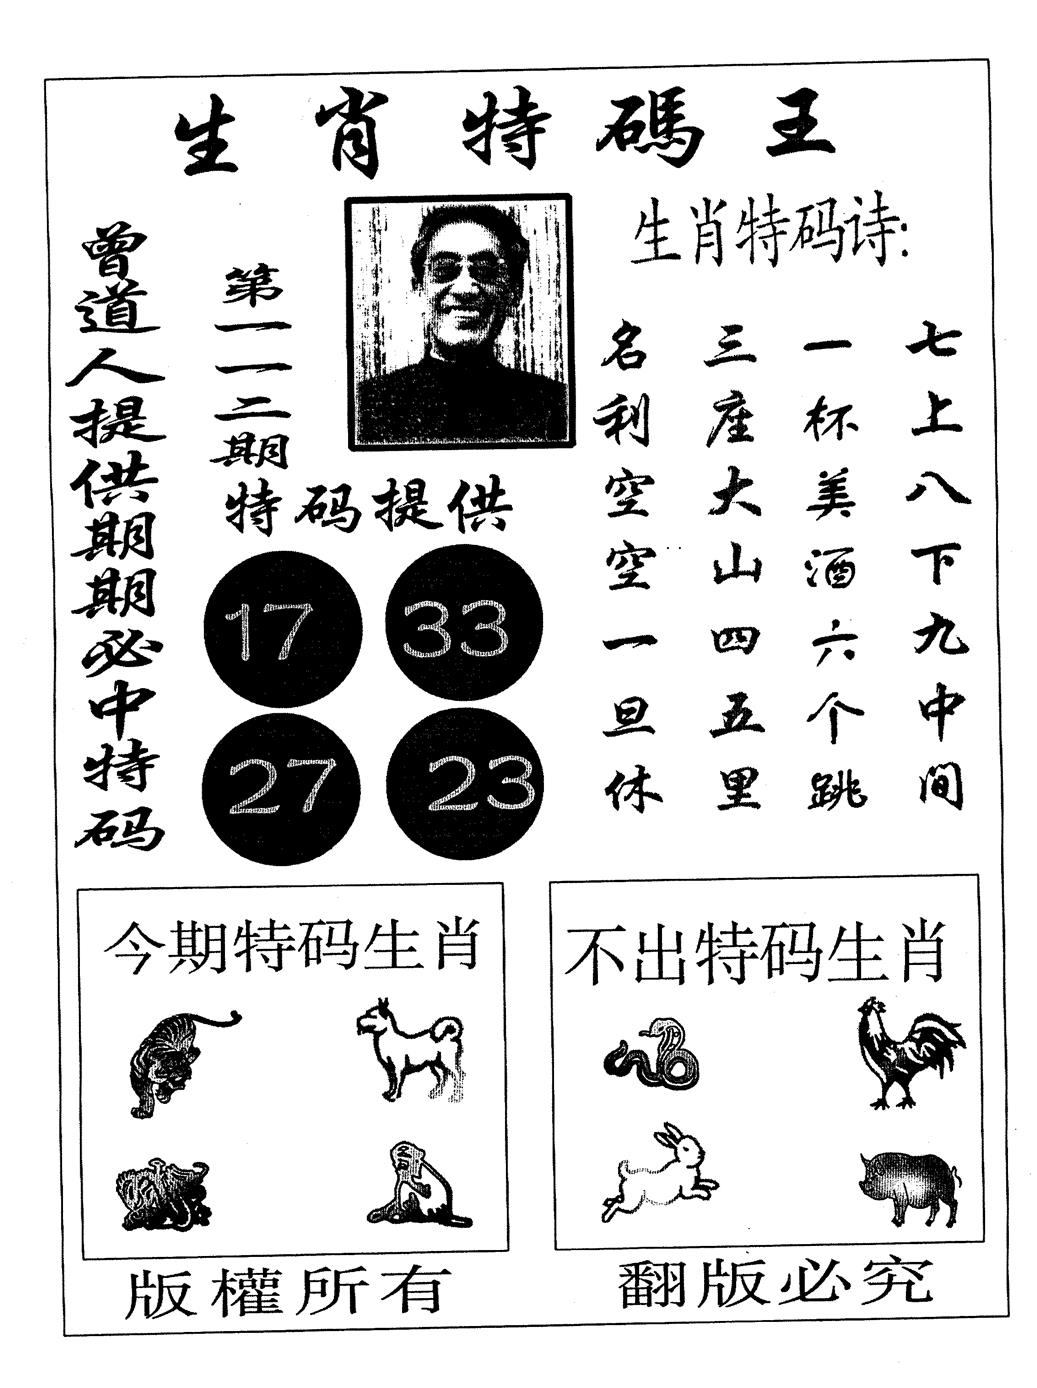 生肖特碼王
曾道人提供期期必中特码
第一一二期
特码提供
17 33
27 23
生肖特码诗:
七上八下九中间
一杯美酒六个跳
三座大山四五里
名利空空一旦休
今期特码生肖
不出特码生肖
版權所有
翻版必究